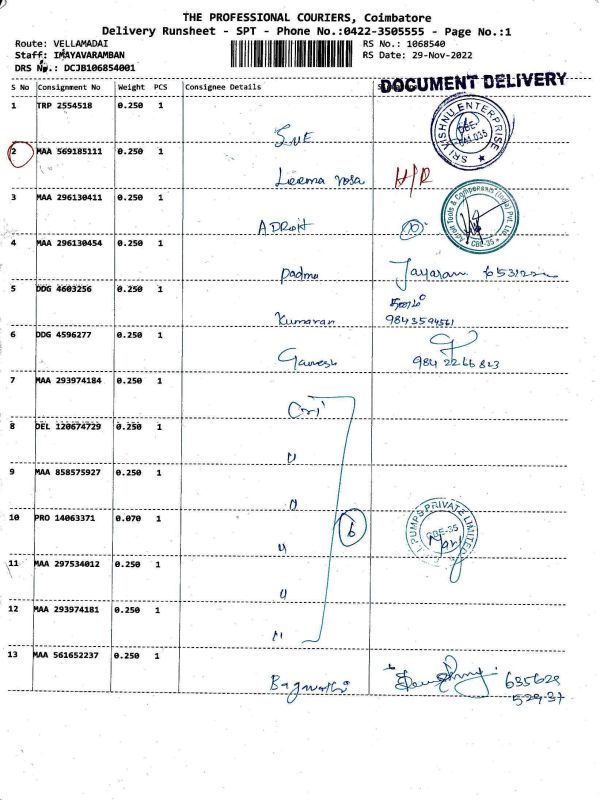 THE PROFESSIONAL COURIERS, Coimbatore
Delivery Runsheet - SPT - Phone No.:0422-3505555 - Page No.:1
Route: VELLAMADAI RS No.: 1068540
Staff: IMAYAVARAMBAN RS Date: 29-Nov-2022
DRS No.: DCJB106854001
DOCUMENT DELIVERY
S No Consignment No Weight PCS Consignee Details
1 TRP 2554518 0.250 1
SVE SRI VISHNU ENTERPRISE CBE-641 035
2 MAA 569185111 0.250 1
Leema rosa H/R
3 MAA 296130411 0.250 1
ADRoit Adroit Tools & Components (India) Pvt. Ltd. CBE-35
4 MAA 296130454 0.250 1
Padma Jayaram
5 DDG 4603256 0.250 1
Kumaran 9843594561
6 DDG 4596277 0.250 1
Ganesh 984 2266 823
7 MAA 293974184 0.250 1
Cri
8 DEL 120674729 0.250 1
"
9 MAA 858575927 0.250 1
"
10 PRO 14063371 0.070 1 6
" I PUMPS PRIVATE LIMITED CBE-35
11 MAA 297534012 0.250 1
"
12 MAA 293974181 0.250 1
"
13 MAA 561652237 0.250 1
Bagwathi 635629
52937